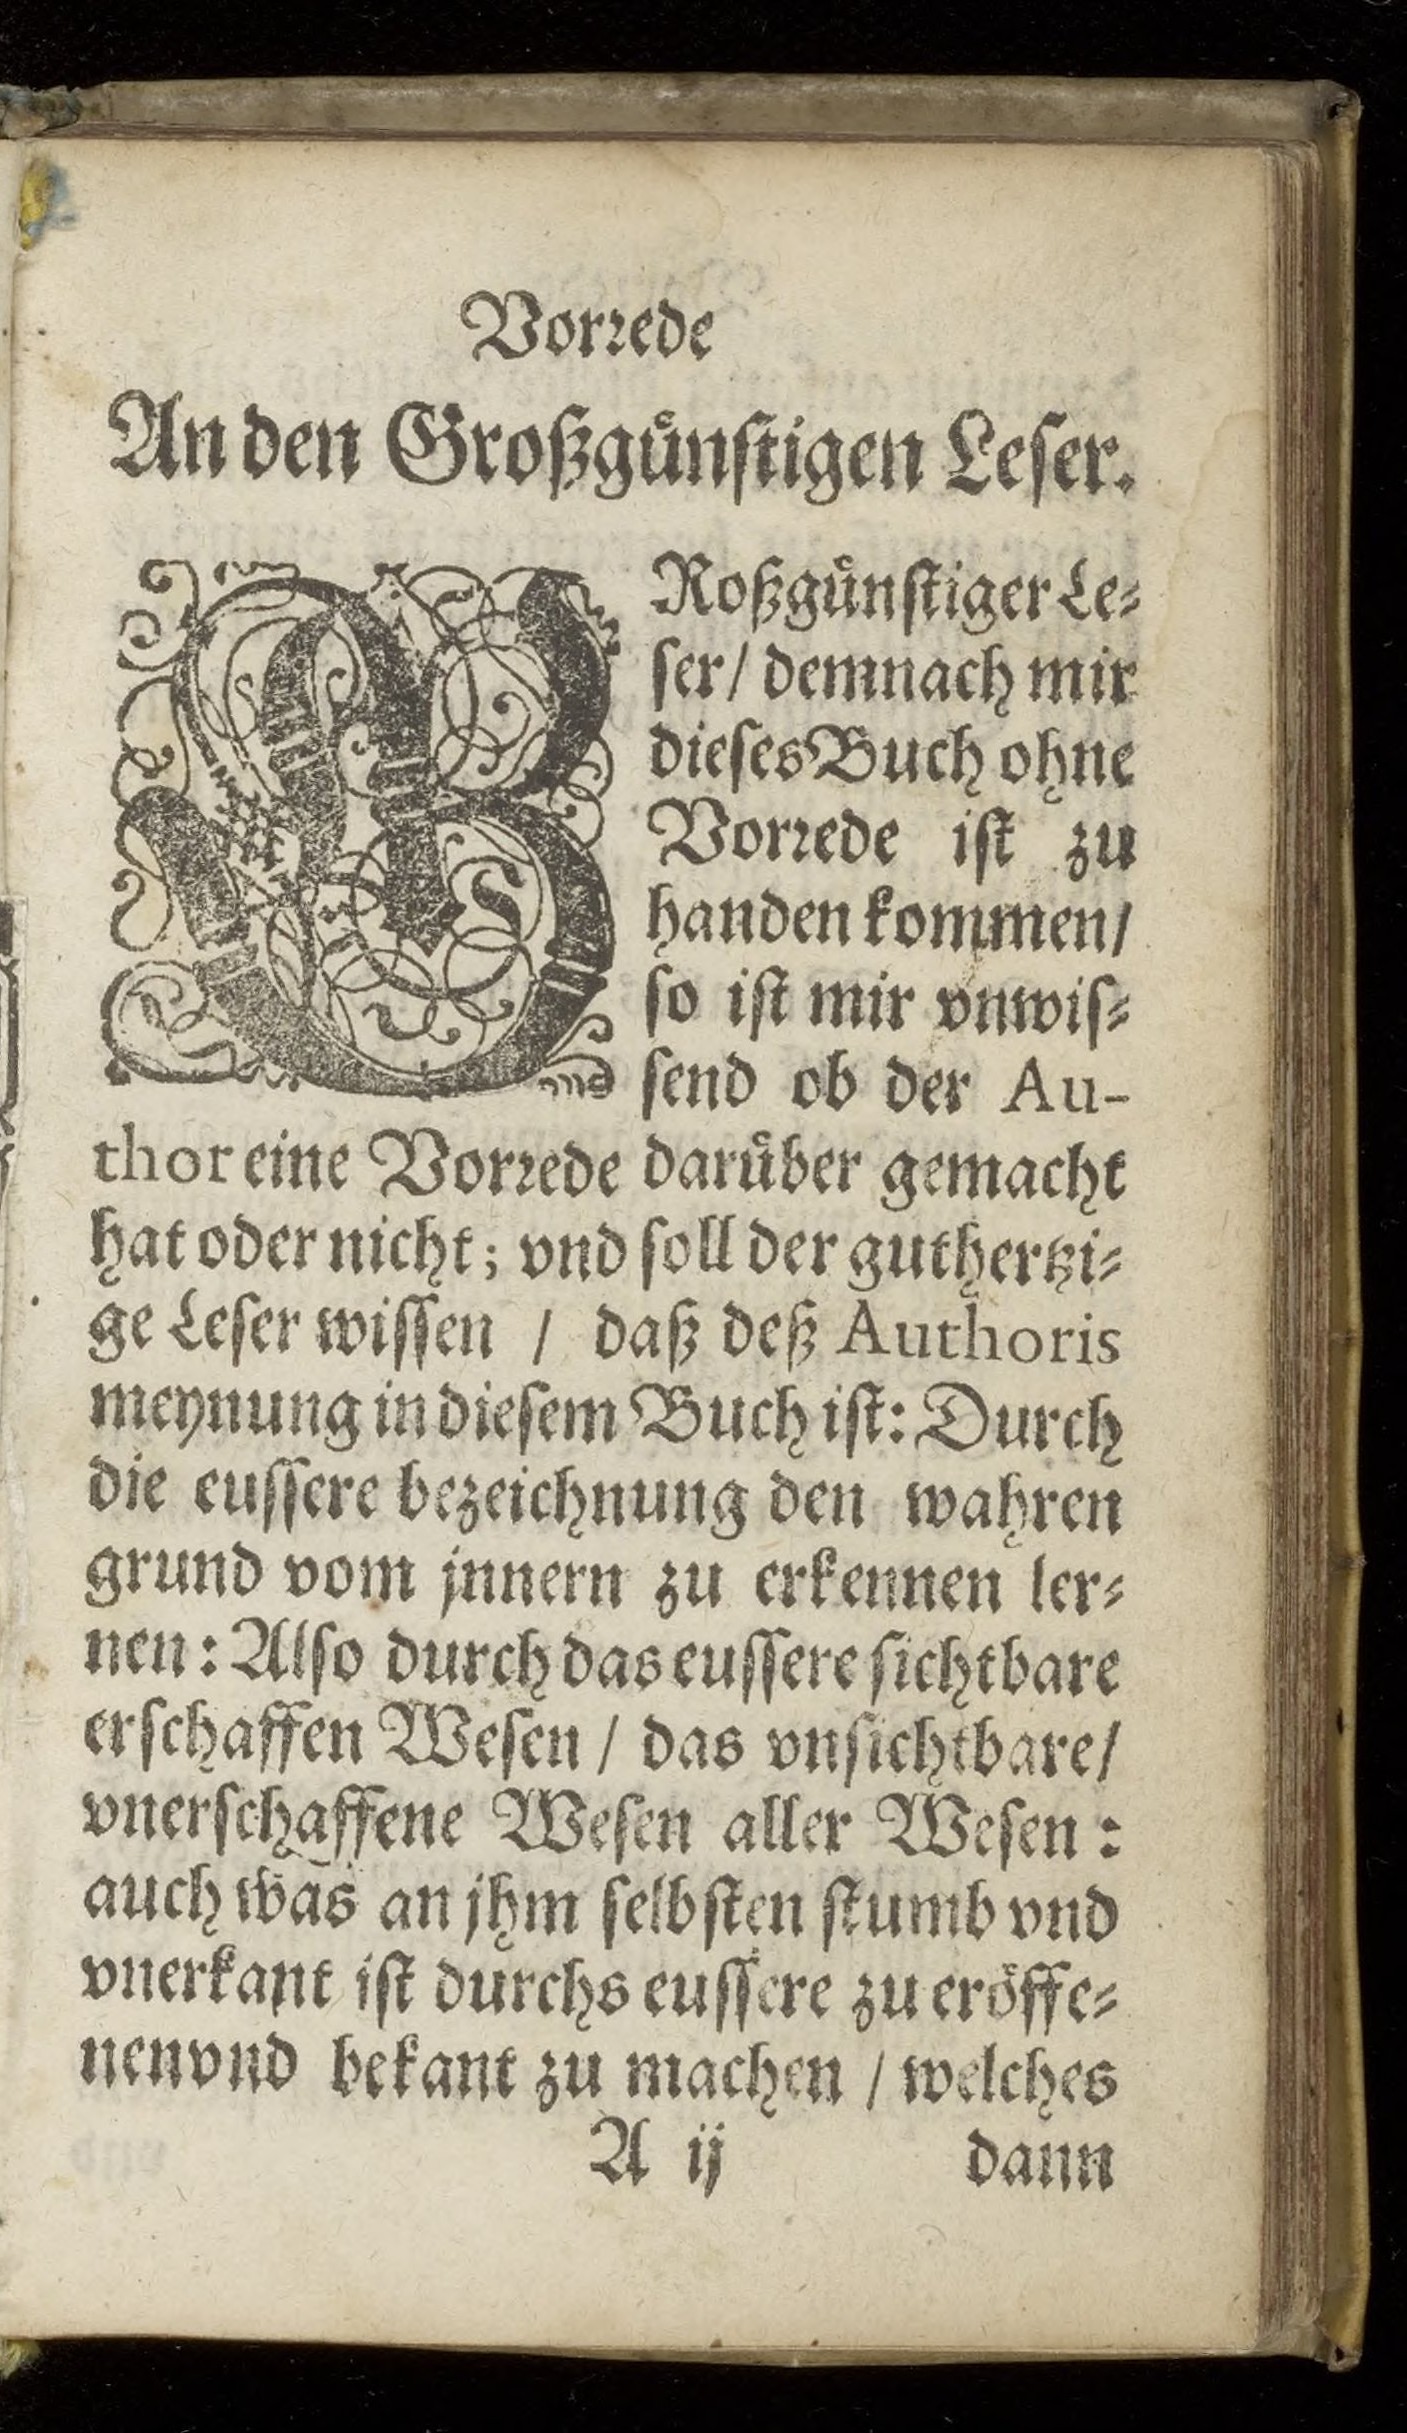 Vorꝛede
An den Großguͤnſtigen Leſer.
GRoßguͤnſtiger Le⸗
ſer/ demnach mir
dieſes Buch ohne
Vorꝛede iſt zu
handen kommen/
ſo iſt mir vnwiſ⸗
ſend ob der Au-
thor eine Vorꝛede daruͤber gemacht
hat oder nicht; vnd ſoll der guthertzi⸗
ge Leſer wiſſen / daß deß Authoris
meynung in dieſem Buch iſt: Durch
die euſſere bezeichnung den wahren
grund vom jnnern zu erkennen ler⸗
nen: Alſo durch das euſſere ſichtbare
erſchaffen Weſen / das vnſichtbare/
vnerſchaffene Weſen aller Weſen:
auch was an jhm ſelbſten ſtumb vnd
vnerkant iſt durchs euſſere zu eroͤffe⸗
nen vnd bekant zu machen / welches
A ij dann